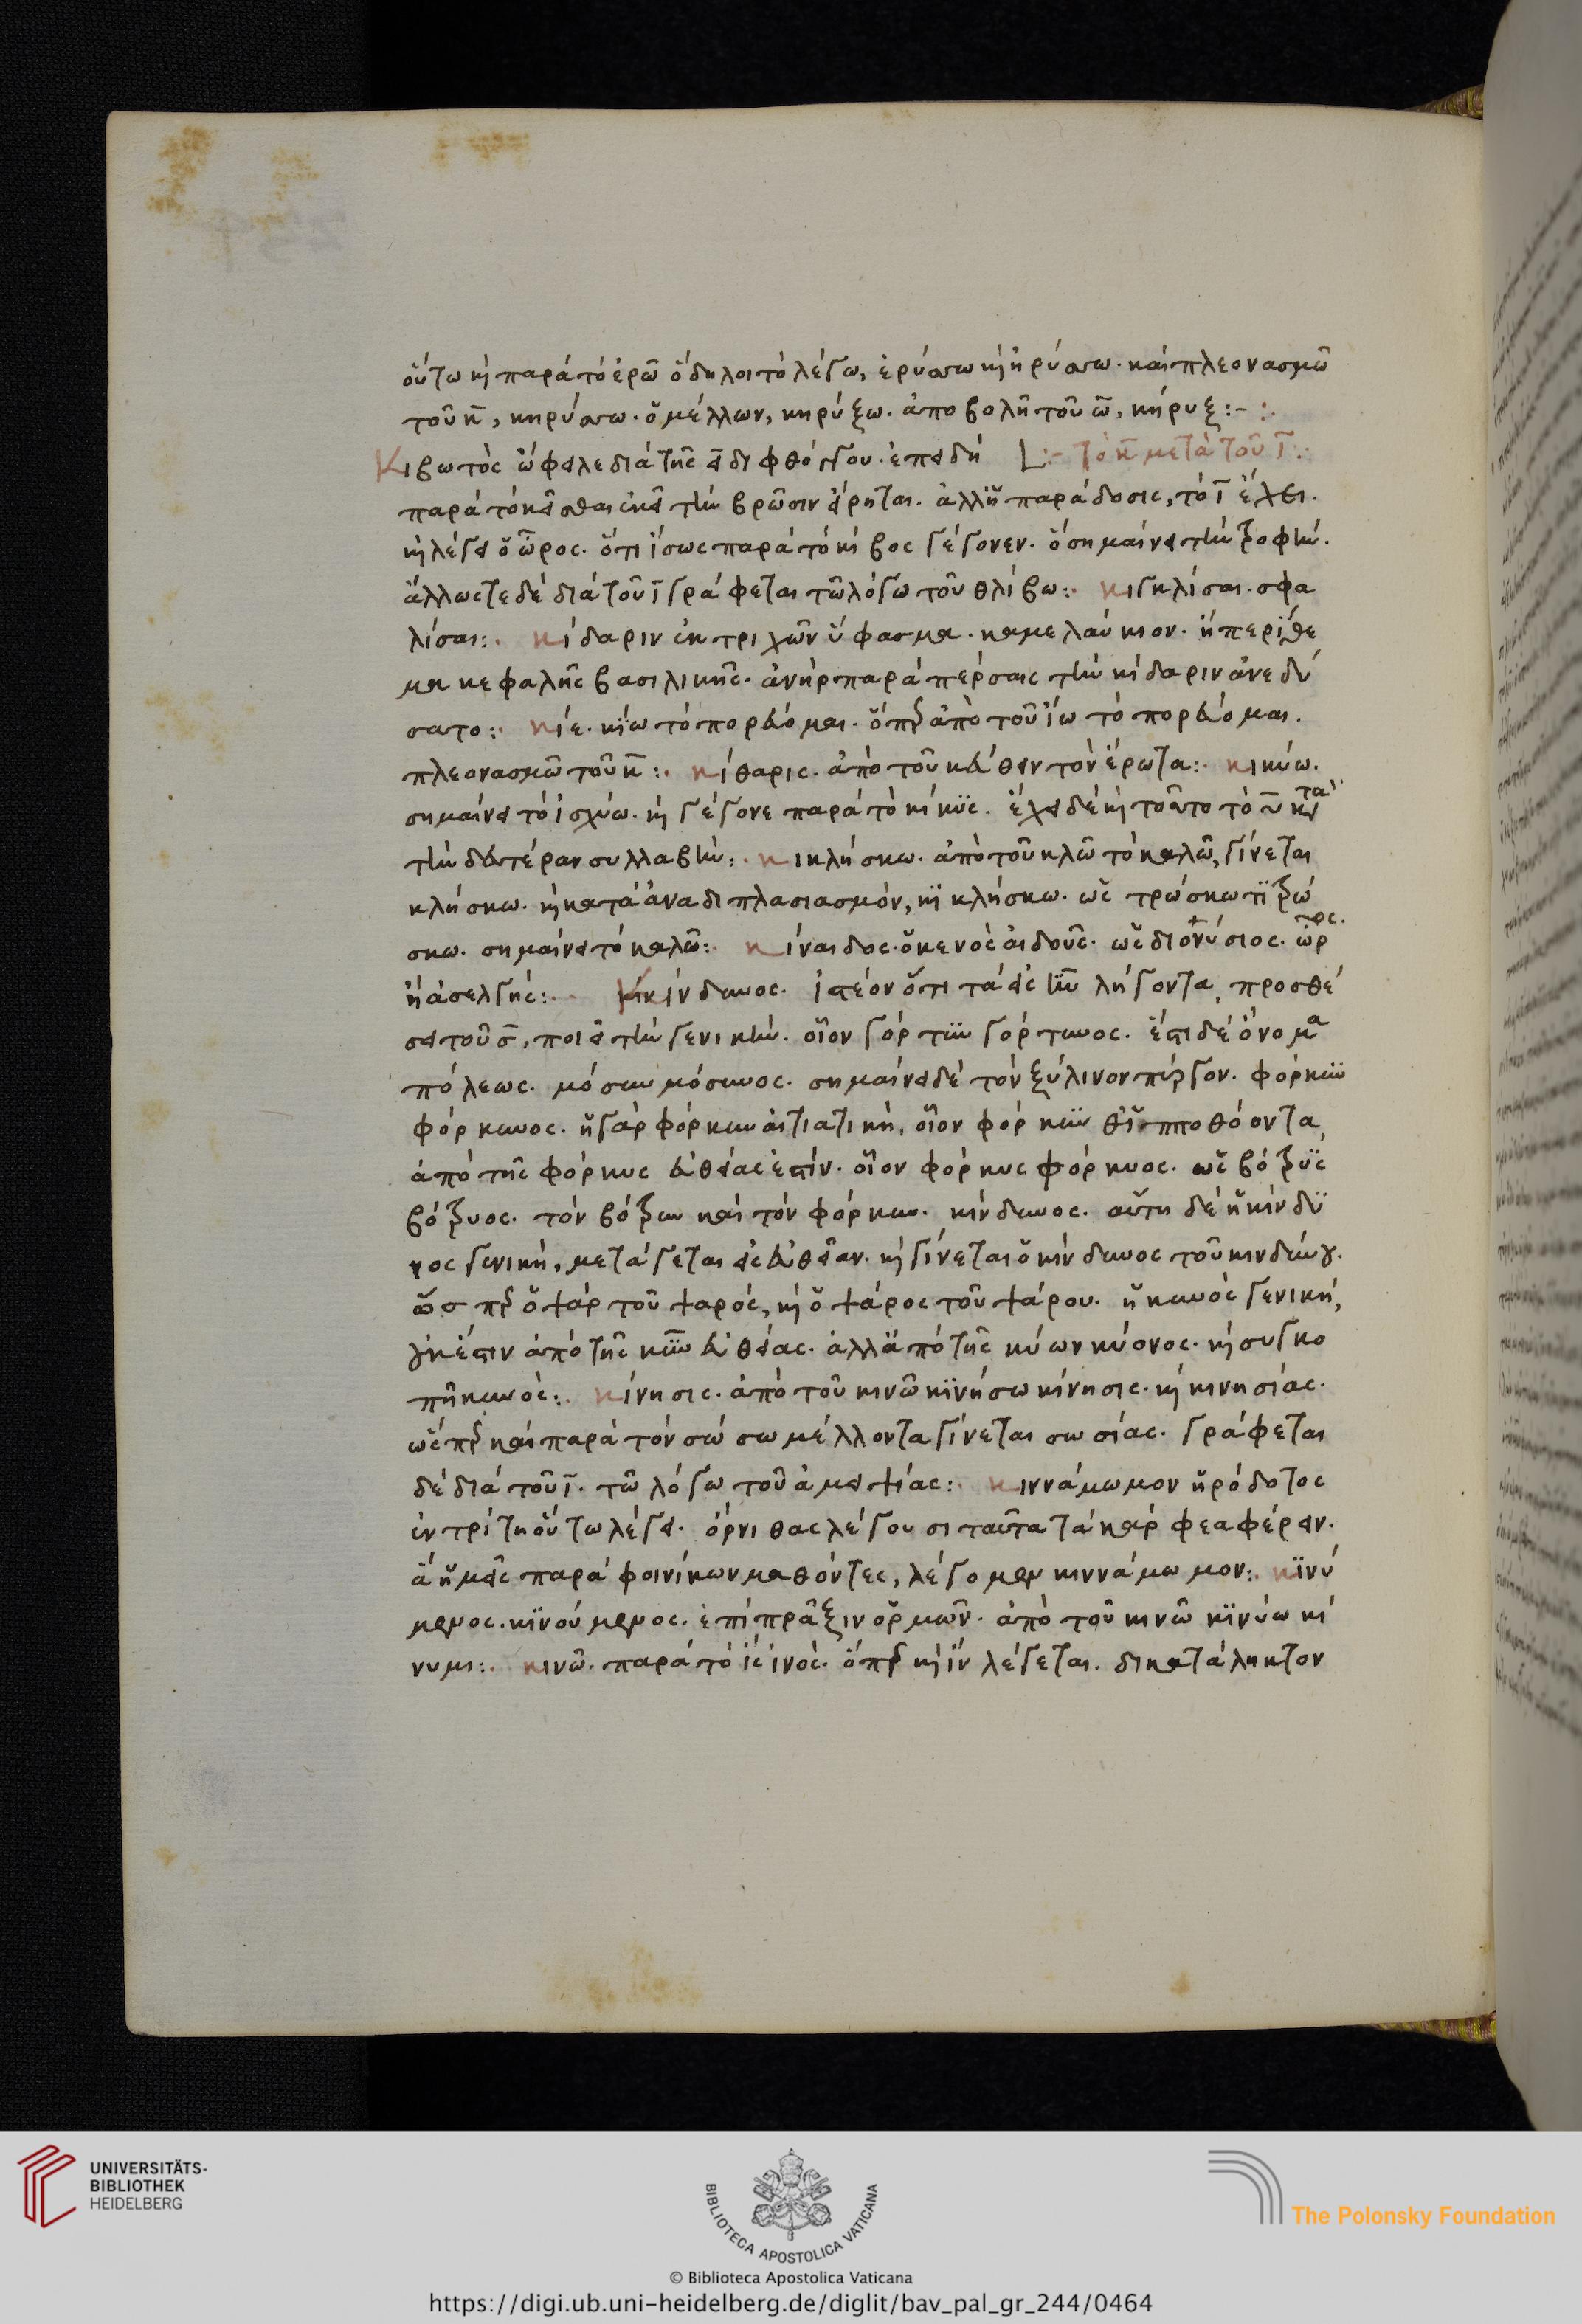 οὕτω κ παρὰ τὸ ἐρῶ ὃ δηλοῖ τὸ λέγω, ἐρύσσω κ ἠρύσσω. καὶ πλεονασμῶ
τοῦ κ̄, κηρύσσω. ὁ μέλλων, κηρύξω. ἀποβολῆ τοῦ ω̄, κήρυξ :- :.
Κιβωτὸς ὤφειλε διὰ τῆς ει διφθόγγου. ἐπειδὴ :- τὸ κ̄ μετὰ τοῦ ῑ :.
παρὰ τὸ κεῖσθαι ἐκεῖ τὴν βρῶσιν εἴρηται. ἀλλ ἡ παράδοσις, τὸ ῑ ἔχει.
κ λέγει ὁ ὦρος. ὅτι ἴσως παρὰ τὸ κίβος γέγονεν. ὃ σημαίνει τὴν τροφήν.
ἄλλως τε δὲ διὰ τοῦ ῑ γράφεται τῶ λόγω τοῦ θλίβω :. κιγκλίσαι. σφα
λίσαι :. κίδαριν ἐκ τριχῶν ὕφασμα. καμελαύκιον. ἢ περίθε
μα κεφαλῆς βασιλικῆς. ἀνὴρ παρὰ πέρσαις τὴν κίδαριν ἀνεδύ
σατο :. κίε. κίω τὸ πορεύομαι. ὅπερ ἀπὸ τοῦ ἴω τὸ πορεύομαι.
πλεονασμῶ τοῦ κ̄ :. κίθαρις. ἀπὸ τοῦ κεύθειν τὸν ἔρωτα :. κικύω.
σημαίνει τὸ ἰσχύω. κ γέγονε παρὰ τὸ κίκυς. ἔχει δὲ κ τοῦτο τὸ ῡ κατὰ
τὴν δευτέραν συλλαβήν :. κικλήσκω. ἀπὸ τοῦ κλῶ τὸ καλῶ, γίνεται
κλήσκω. κ κατὰ ἀναδιπλασιασμόν, κικλήσκω. ὡς τρώσκω τιτρώ
σκω. σημαίνει τὸ καλῶ :. κίναιδος. ὁ κενὸς αἰδοῦς. ὡς διονύσιος. ὦρος.
ἢ ἀσελγής :. Κίνδυνος. ἰστέον ὅτι τὰ εἰς ῡν λήγοντα, προσθέ
σει τοῦ σ̄, ποιεῖ τὴν γενικήν. οἷον γόρτυν γόρτυνος. ἔστι δὲ ὄνομα
πόλεως. μόσυν μόσυνος. σημαίνει δὲ τὸν ξύλινον πύργον. φόρκυν
φόρκυνος. ἡ γὰρ φόρκυν αἰτιατικὴ, οἷον φόρκυν
ἀπὸ τῆς φόρκυς εὐθείας ἐστίν. οἷον φόρκυς φόρκυος. ὡς βότρυς
βότρυος. τὸν βότρυν καὶ τὸν φόρκυν. κίνδυνος. αὕτη δὲ ἡ κίνδυ
νος γενικὴ, μετάγεται εἰς εὐθεῖαν. κ γίνεται ὁ κίνδυνος τοῦ κινδύνου.
ὥσπερ ὁ ψὰρ τοῦ ψαρός, κ ὁ ψάρος τοῦ ψάρου. ἡ κυνὸς γενικὴ,
οὐκ ἔστιν ἀπὸ τῆς κυν εὐθείας. ἀλλ ἀπὸ τῆς κύων κύονος. κ συγκο
πῆ κυνὸς :. κίνησις. ἀπὸ τοῦ κινῶ κινήσω κίνησις. κ κινησίας.
ὥσπερ καὶ παρὰ τὸν σώσω μέλλοντα γίνεται σωσίας. γράφεται
δὲ διὰ τοῦ ῑ. τῶ λόγω τοῦ ἀμειψίας :. κιννάμωμον ἡρόδοτος
ἐν τρίτη οὕτω λέγει. ὄρνιθας λέγουσι ταῦτα τὰ κάρφεα φέρειν.
ἃ ἡμεῖς παρὰ φοινίκων μαθόντες, λέγομεν κιννάμωμον :. κινύ
μενος. κινούμενος. ἐπὶ πρᾶξιν ὁρμῶν. ἀπὸ τοῦ κινῶ κινύω κί
νυμι :. κινῶ. παρὰ τὸ ἲς ἰνός. ὅπερ κ ἲν λέγεται. δικατάληκτον
UNIVERSITÄTS-
BIBLIOTHEK
HEIDELBERG
BIBLIOTECA APOSTOLICA VATICANA
The Polonsky Foundation
© Biblioteca Apostolica Vaticana
https://digi.ub.uni-heidelberg.de/diglit/bav_pal_gr_244/0464